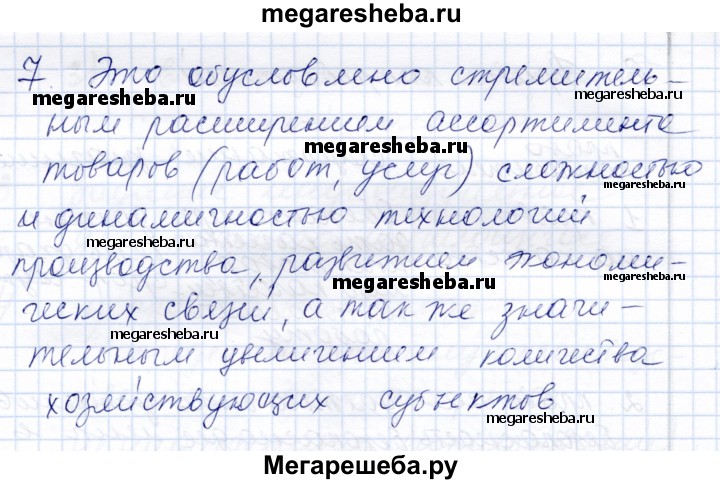 megaresheba.ru
7. Это обусловлено стремитель-
megaresheba.ru
megaresheba.ru
ным расширением ассортимента
megaresheba.ru
товаров (работ, услуг) сложностью
megaresheba.ru
и динамичностью технологий
megaresheba.ru
производства, развитием экономи-
megaresheba.ru
ческих связей, а так же значи-
megaresheba.ru
тельным увеличением количества
хозяйствующих субъектов
megaresheba.ru
Мегарешеба.ру